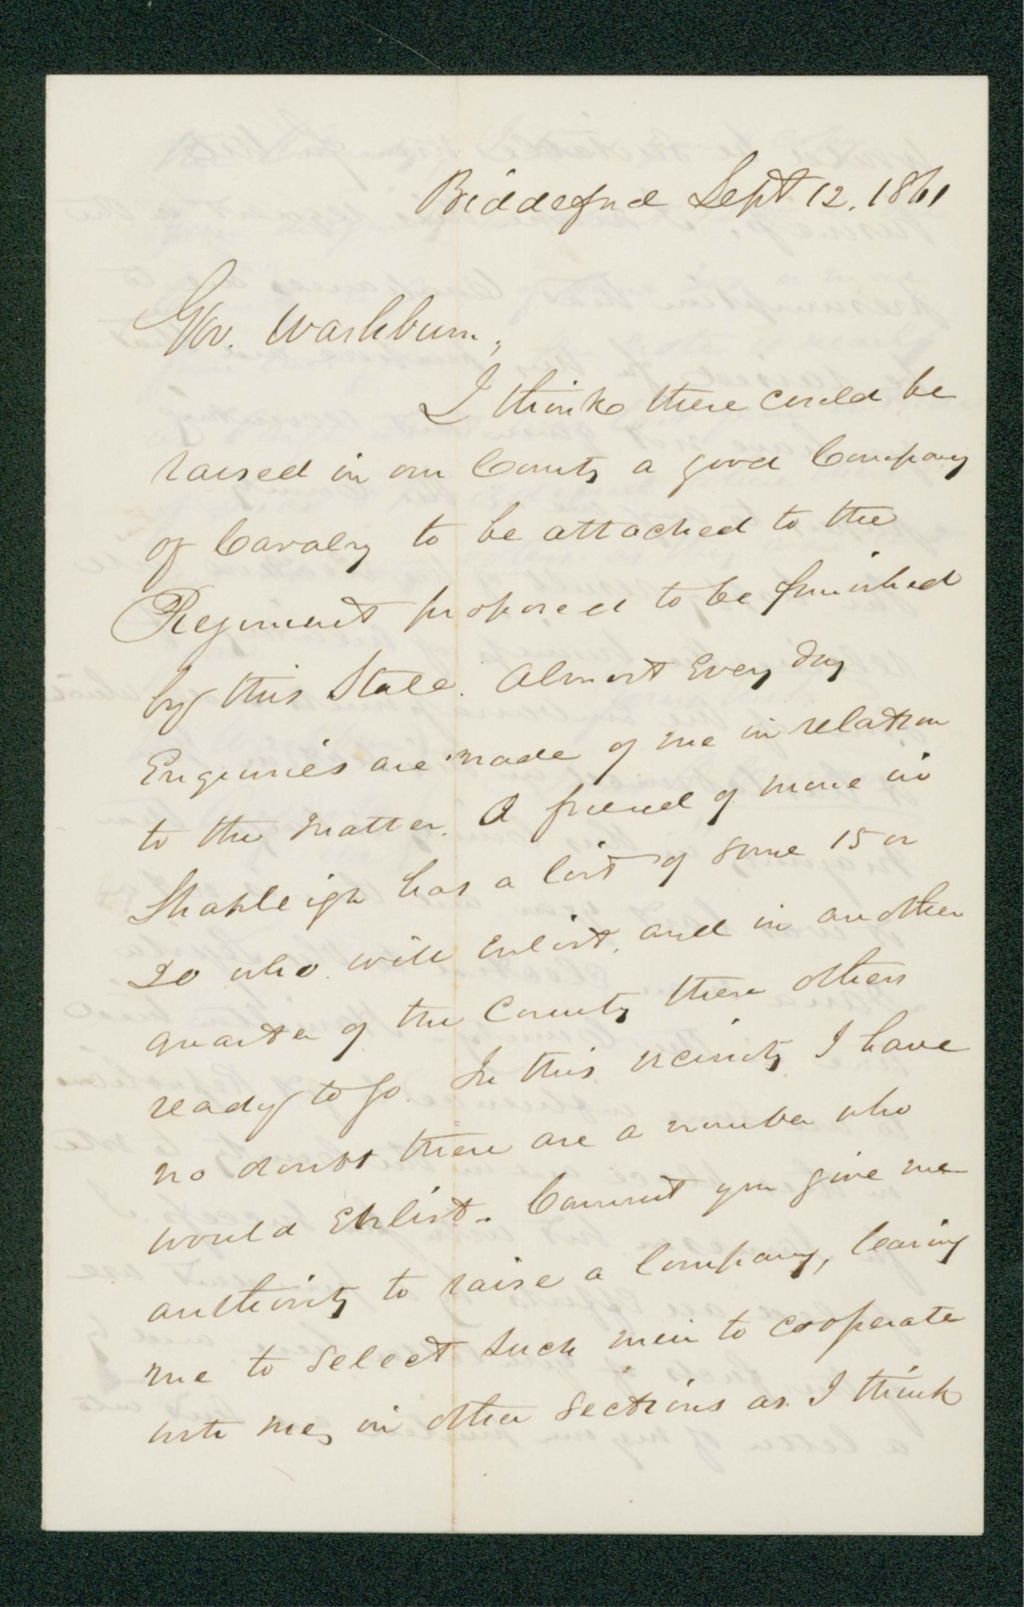 Biddeford Sept 12. 1861
Gov. Washburn,
I think there could be
raised in our County a good Company
of Cavalry to be attached to the
Regiment proposed to be furnished
by this State. Almost Every day
Enquiries are made of me in relation
to the matter. A friend of mine in
Shapleigh has a list of some 15 or
20 who will enlist, and in another
quarter of the County there others
ready to go. In this vicinity I have
no doubt there are a number who
would Enlist. Cannot you give me
authority to raise a Company, leaving
me to select such men to cooperate
with me, in other sections as I think